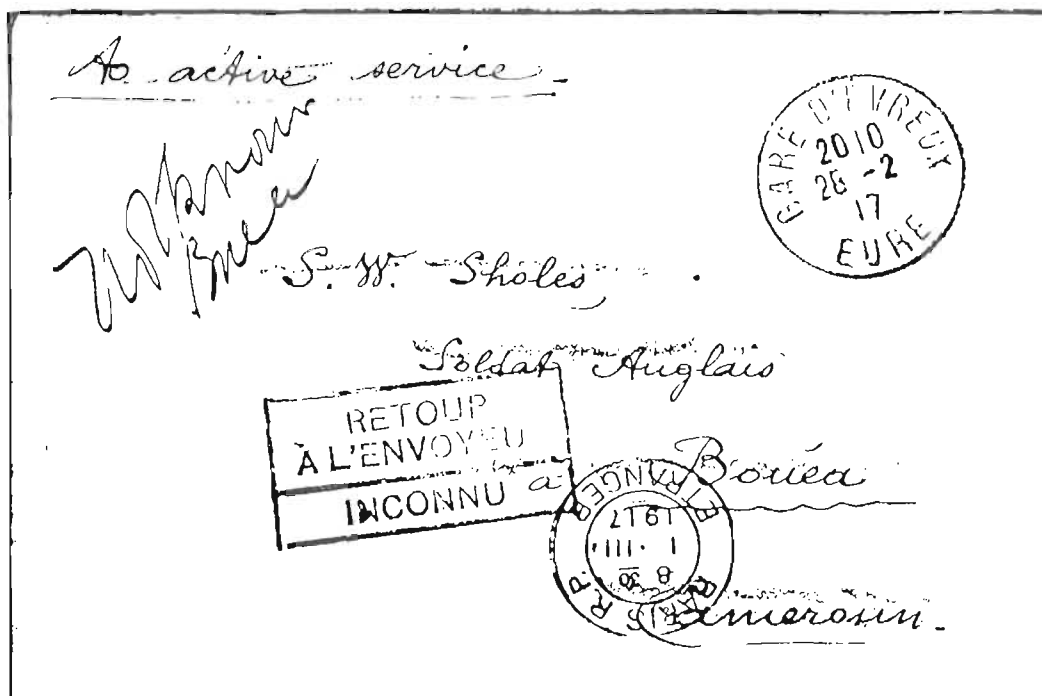 As active service.
Not known
Buea
GARE D'EVREUX
2010
28 -2
17
EURE
S. W. Sholes
Soldat Anglais
RETOUR
À L'ENVOYEU
INCONNU
à Bouéa
PARIS R.P. ETRANGER
8 30
1 · III ·
1917
Cameroun.